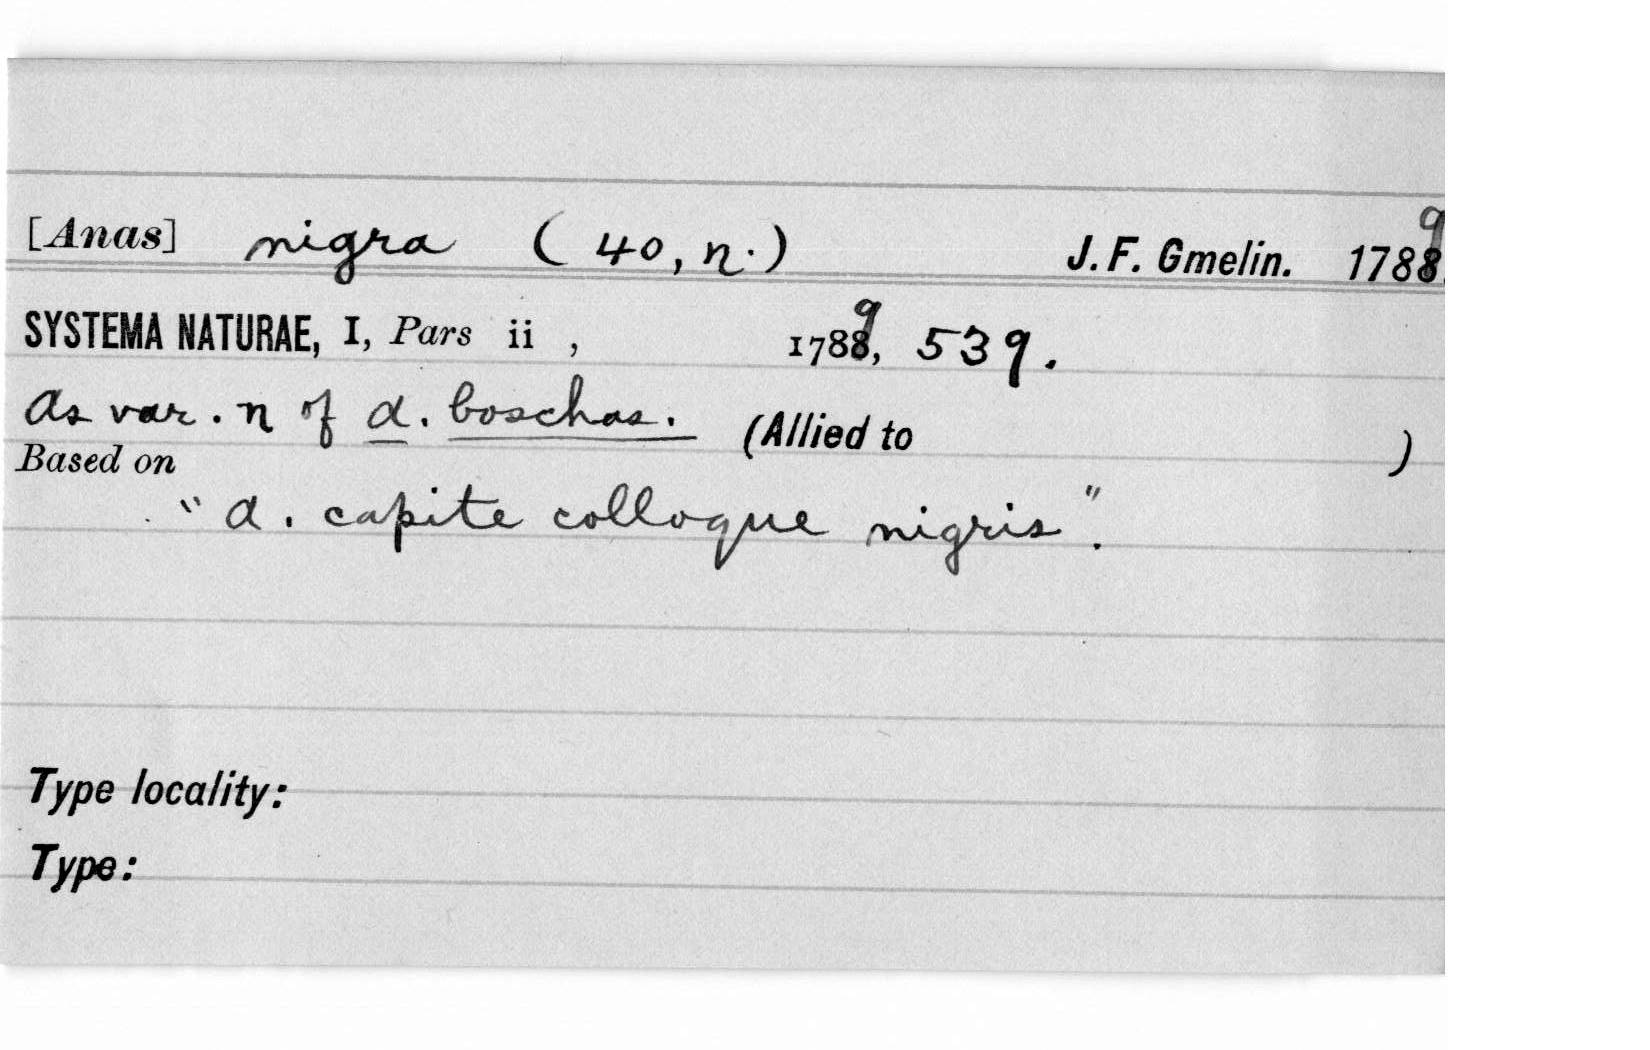 [Anas] nigra (40, n.) J. F. Gmelin. 1789
SYSTEMA NATURAE, I, Pars ii , 1789, 539.
As var. n of A. boschas. (Allied to )
Based on
"A. capite colloque nigris".
Type locality:
Type: